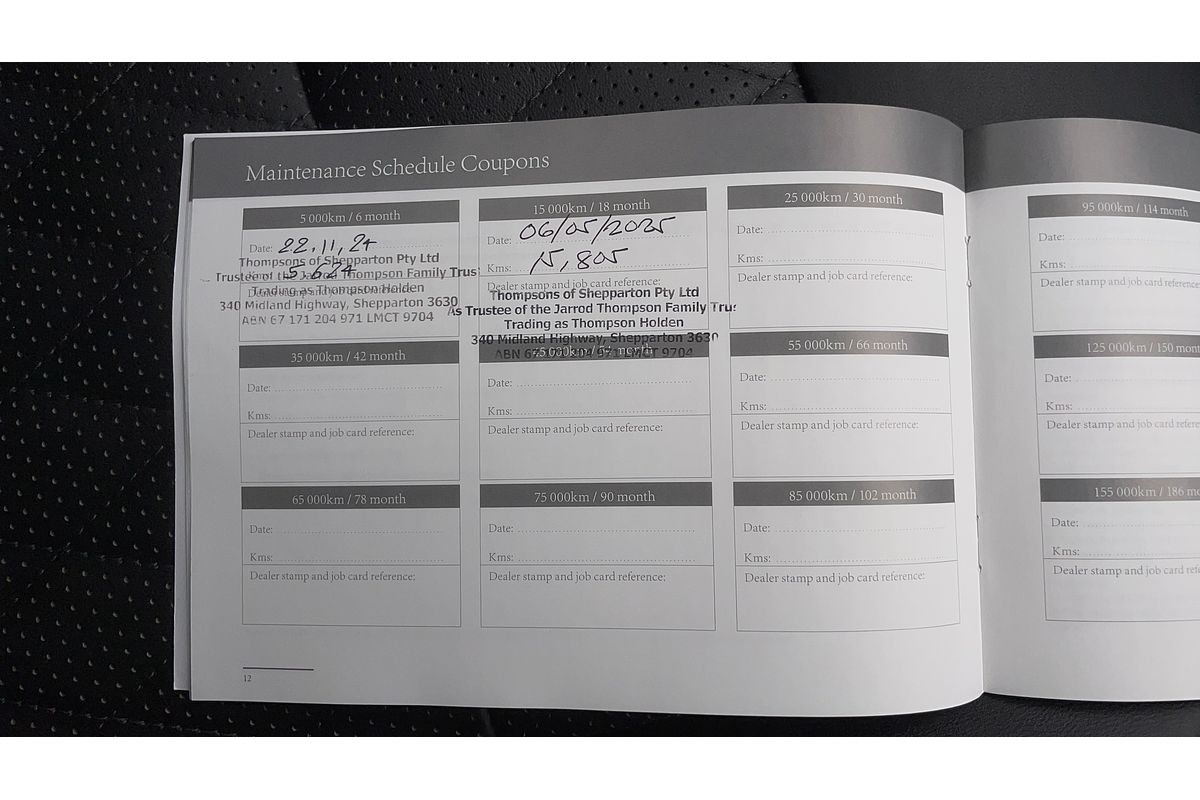 Maintenance Schedule Coupons
5 000km / 6 month
Date: 22.11.24
Kms: 5,624
Dealer stamp and job card reference:
Thompsons of Shepparton Pty Ltd
Trustee of the Jarrod Thompson Family Trus
Trading as Thompson Holden
340 Midland Highway, Shepparton 3630
ABN 67 171 204 971 LMCT 9704
15 000km / 18 month
Date: 06/05/2025
Kms: 15,805
Dealer stamp and job card reference:
Thompsons of Shepparton Pty Ltd
As Trustee of the Jarrod Thompson Family Trus
Trading as Thompson Holden
340 Midland Highway, Shepparton 3630
ABN 67 171 204 971 LMCT 9704
25 000km / 30 month
Date:
Kms:
Dealer stamp and job card reference:
35 000km / 42 month
Date:
Kms:
Dealer stamp and job card reference:
45 000km / 54 month
Date:
Kms:
Dealer stamp and job card reference:
55 000km / 66 month
Date:
Kms:
Dealer stamp and job card reference:
65 000km / 78 month
Date:
Kms:
Dealer stamp and job card reference:
75 000km / 90 month
Date:
Kms:
Dealer stamp and job card reference:
85 000km / 102 month
Date:
Kms:
Dealer stamp and job card reference:
12
95 000km / 114 month
Date:
Kms:
Dealer stamp and job card reference
125 000km / 150 mont
Date:
Kms:
Dealer stamp and job card refere
155 000km / 186 mo
Date:
Kms:
Dealer stamp and job card refe